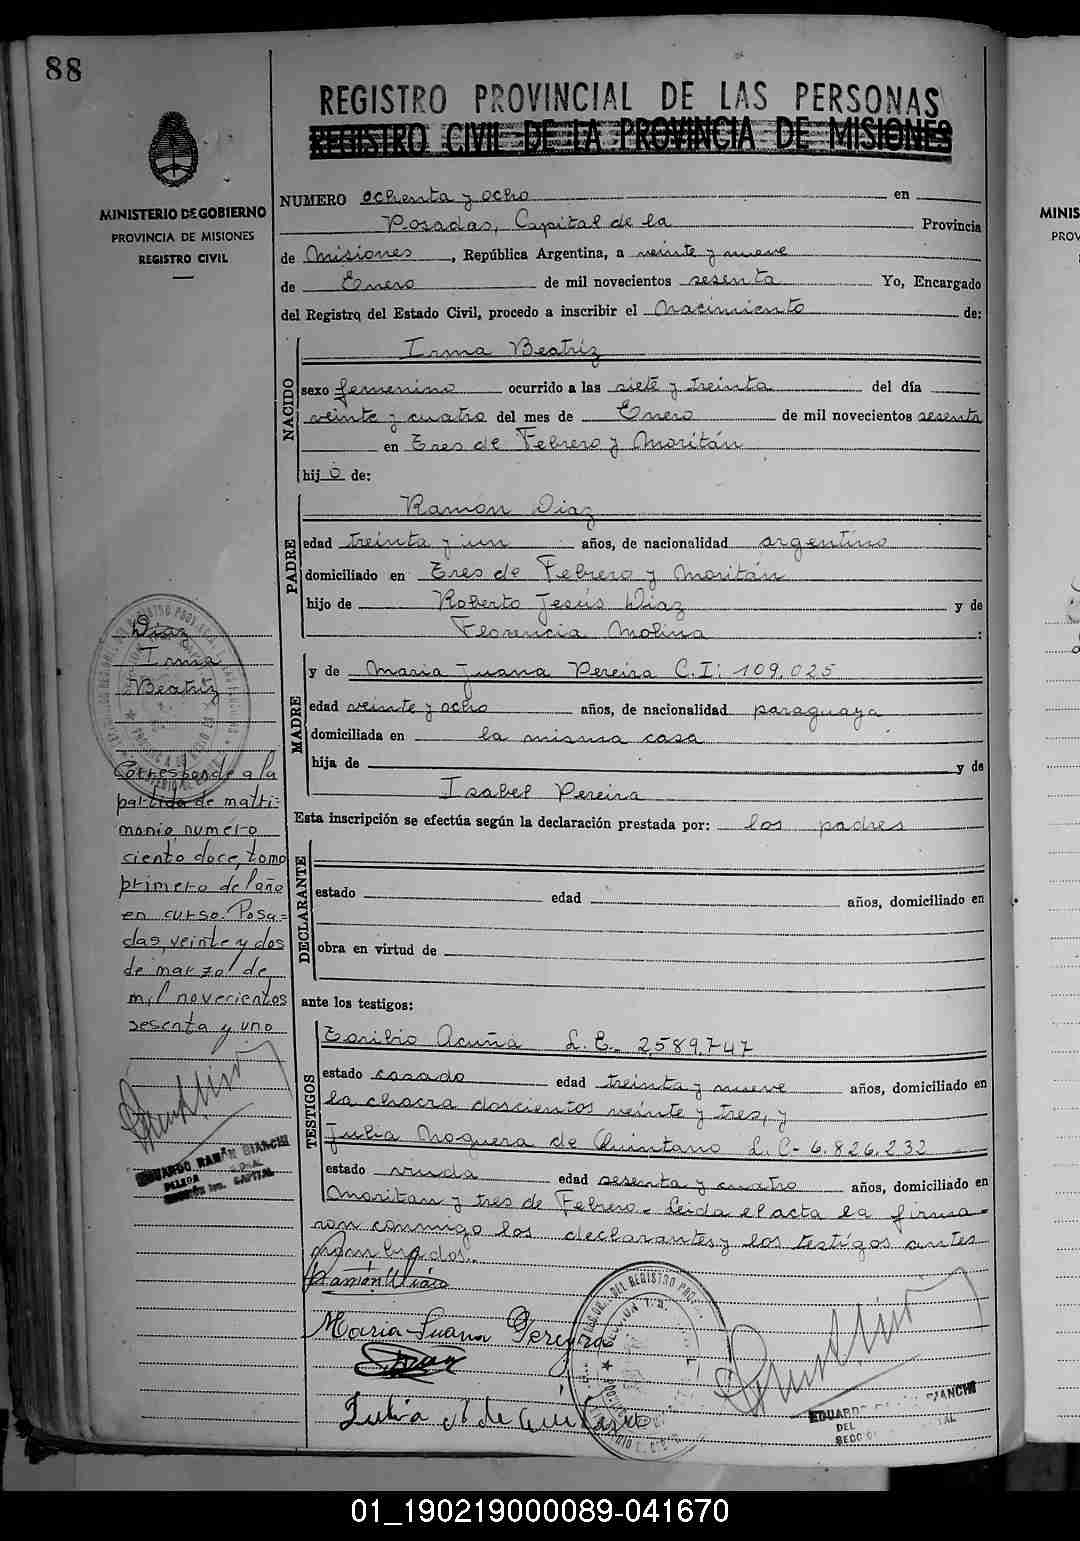 88
REGISTRO PROVINCIAL DE LAS PERSONAS
REGISTRO CIVIL DE LA PROVINCIA DE MISIONES
MINISTERIO DE GOBIERNO
PROVINCIA DE MISIONES
REGISTRO CIVIL
NUMERO ochenta y ocho en
Posadas, Capital de la Provincia
de Misiones, República Argentina, a veinte y nueve
de Enero de mil novecientos sesenta Yo, Encargado
del Registro del Estado Civil, procedo a inscribir el Nacimiento de:
NACIDO
Irma Beatriz
sexo femenino ocurrido a las siete y treinta del día
veinte y cuatro del mes de Enero de mil novecientos sesenta
en Tres de Febrero y Moritán
hij o de:
PADRE
Ramón Diaz
edad treinta y un años, de nacionalidad argentino
domiciliado en Tres de Febrero y Moritán
hijo de Roberto Jesús Diaz y de
Florencia Molina :
MADRE
y de Maria Juana Pereira C.I: 109.025
edad veinte y ocho años, de nacionalidad paraguaya
domiciliada en la misma casa
hija de y de
Isabel Pereira
Esta inscripción se efectúa según la declaración prestada por: los padres
DECLARANTE
estado edad años, domiciliado en
obra en virtud de
ante los testigos:
TESTIGOS
Toribio Acuña L.E. 2.589.747
estado casado edad treinta y nueve años, domiciliado en
la chacra doscientos veinte y tres, y
Julia Noguera de Quintano L.C- 6.826.232
estado viuda edad sesenta y cuatro años, domiciliado en
Moritan y tres de Febrero. Leida el acta la firma=
ron conmigo los declarantes y los testigos antes
nombrados.
Ramón Diaz
Maria Juana Pereyra
Julia N de Quintano
EDUARDO BIANCHI
DEL
SECCIO
Diaz
Irma
Beatriz
Corresponde a la
partida de matri-
monio numero
ciento doce, tomo
primero del año
en curso. Posa=
das, veinte y dos
de marzo de
mil novecientos
sesenta y uno
EDUARDO RAMÓN BIANCHI
CAPITAL
MINIS
PROV
01_190219000089-041670